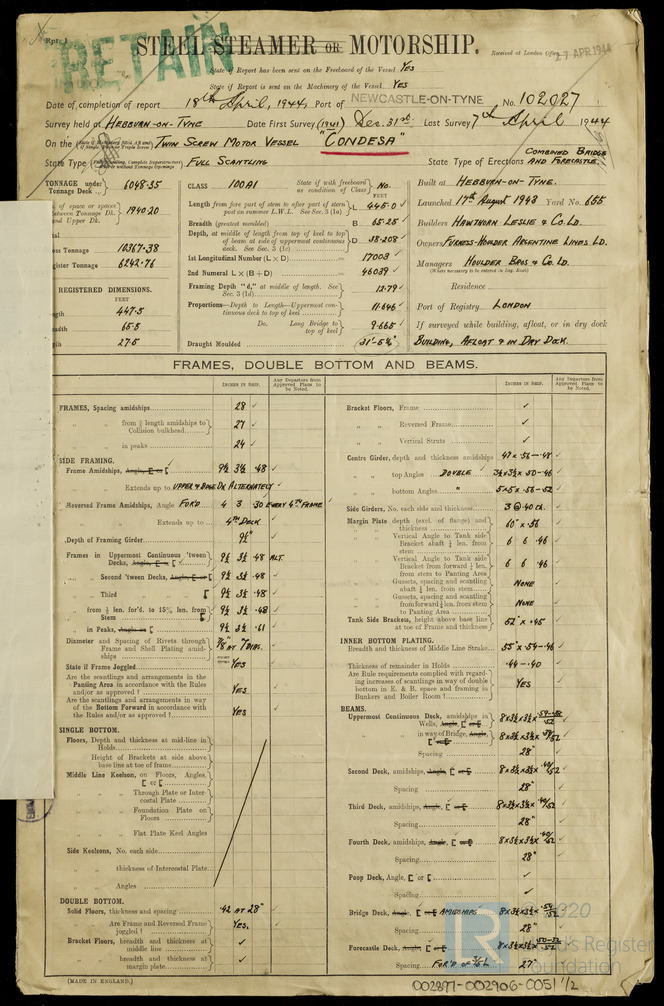 Rpt. 1
RETAIN
STEEL STEAMER OR MOTORSHIP.
Received at London Office 27 APR 1944
State if Report has been sent on the Freeboard of the Vessel YES
State if Report is sent on the Machinery of the Vessel YES
Date of completion of report 18th April, 1944, Port of NEWCASTLE-ON-TYNE No. 102027
Survey held at HEBBURN-ON-TYNE Date First Survey (1941) Dec. 31st. Last Survey 7th April 1944
On the TWIN SCREW MOTOR VESSEL "CONDESA"
State Type FULL SCANTLING State Type of Erections COMBINED BRIDGE AND FORECASTLE.
TONNAGE under Tonnage Deck 6048.35
of space or spaces between Tonnage Dk. and Upper Dk. 1940.20
Gross Tonnage 10367.38
Register Tonnage 6242.76
REGISTERED DIMENSIONS.
FEET
447.5
65.5
27.5
CLASS 100A1 State if with freeboard as condition of Class No.
FEET
Length from fore part of stem to after part of stern post on summer L.W.L. See Sec. 3 (1a) L 445.0
Breadth (greatest moulded) B 65.25
Depth, at middle of length from top of keel to top of beam at side of uppermost continuous deck. See Sec. 3 (1c) D 38.208
1st Longitudinal Number (L × D) 17003
2nd Numeral L × (B + D) 46039
Framing Depth "d," at middle of length. See Sec. 3 (1d) 12.79
Proportions—Depth to Length—Uppermost continuous deck to top of keel 11.646
Do. Long Bridge to top of keel 9.665
Draught Moulded 31'-5¼"
Built at HEBBURN-ON-TYNE.
Launched 17th August 1943 Yard No. 655
Builders HAWTHORN LESLIE & CO. LD.
Owners FURNESS-HOULDER ARGENTINE LINES LD.
Managers HOULDER BROS & CO. LD.
(Where necessary to be entered in Reg. Book)
Residence
Port of Registry LONDON
If surveyed while building, afloat, or in dry dock
BUILDING, AFLOAT & IN DRY DOCK.
FRAMES, DOUBLE BOTTOM AND BEAMS.
INCHES IN SHIP. Any Departure from Approved Plans to be Noted.
FRAMES, Spacing amidships 28
" " from ⅗ length amidships to Collision bulkhead 27
" " in peaks 24
SIDE FRAMING.
Frame Amidships, Angle, [ or [ 9½ 3½ .48
Extends up to UPPER & BDGE DK ALTERNATELY
Reversed Frame Amidships, Angle FOR'D 4 3 .30 EVERY 4TH FRAME
Extends up to 4TH DECK
Depth of Framing Girder 9½"
Frames in Uppermost Continuous 'tween Decks, Angle, [ or [ 9½ 3½ .48 ALT.
" Second 'tween Decks, Angle, [ or [ 9½ 3½ .48
" Third " " [ 9½ 3½ .48
" from ⅕ len. for'd. to 15% len. from Stem [ 9½ 3½ .48
" in Peaks, Angle or [ 9½ 3½ .61
Diameter and Spacing of Rivets through Frame and Shell Plating amidships ⅞" AT 7 DIAS.
State if Frame Joggled YES
Are the scantlings and arrangements in the Panting Area in accordance with the Rules and/or as approved? YES
Are the scantlings and arrangements in way of the Bottom Forward in accordance with the Rules and/or as approved? YES
SINGLE BOTTOM.
Floors, Depth and thickness at mid-line in Holds
" Height of Brackets at side above base line at toe of frame
Middle Line Keelson, on Floors, Angles, [ or [
" " Through Plate or Intercostal Plate
" " Foundation Plate on Floors
" " Flat Plate Keel Angles
Side Keelsons, No. each side
" " thickness of Intercostal Plate
" " Angles
DOUBLE BOTTOM.
Solid Floors, thickness and spacing .42 AT 28"
" " Are Frame and Reversed Frame joggled? YES.
Bracket Floors, breadth and thickness at middle line ✓
" " breadth and thickness at margin plate ✓
INCHES IN SHIP. Any Departure from Approved Plans to be Noted.
Bracket Floors, Frame ✓
" " Reversed Frame ✓
" " Vertical Struts ✓
Centre Girder, depth and thickness amidships 47 × .56-.48
" " top Angles DOUBLE 3½×3½×.50-.46
" " bottom Angles " 5×5×.58-.52
Side Girders, No. each side and thickness 3 @ .40 ea.
Margin Plate depth (excl. of flange) and thickness 60" × .56
" " Vertical Angle to Tank side Bracket abaft ¼ len. from stem 6 6 .46
" " Vertical Angle to Tank side Bracket from forward ¼ len. from stem to Panting Area 6 6 .46
" " Gussets, spacing and scantling abaft ¼ len. from stem NONE
" " Gussets, spacing and scantling from forward ¼ len. from stem to Panting Area NONE
Tank Side Brackets, height above base line at toe of Frame and thickness 52" × .45
INNER BOTTOM PLATING.
Breadth and thickness of Middle Line Strake 55" × .54-.46
Thickness of remainder in Holds .44-.40
Are Rule requirements complied with regarding increases of scantlings in way of double bottom in E. & B. space and framing in Bunkers and Boiler Room? YES
BEAMS.
Uppermost Continuous Deck, amidships in Wells, Angle, [ or [ 8×3½×3½×
" " in way of Bridge, Angle, [ or [ 8×3½×3½×
Spacing 28"
Second Deck, amidships, Angle, [ or [ 8×3½×3½× .40/52
Spacing 28"
Third Deck, amidships, Angle, [ or [ 8×3½×3½× .40/52
Spacing 28"
Fourth Deck, amidships, Angle, [ or [ 8×3½×3½× .40/52
Spacing 28"
Poop Deck, Angle, [ or [ ✓
Spacing ✓
Bridge Deck, Angle, [ or [ AMIDSHIPS 8×3½×3½×
Spacing 28"
Forecastle Deck, Angle, [ or [ 8×3½×3½×
Spacing FOR'D OF ⅗ L 27"
(MADE IN ENGLAND.)
© 2020
Lloyd's Register
Foundation
002897-002906-0051 1/2